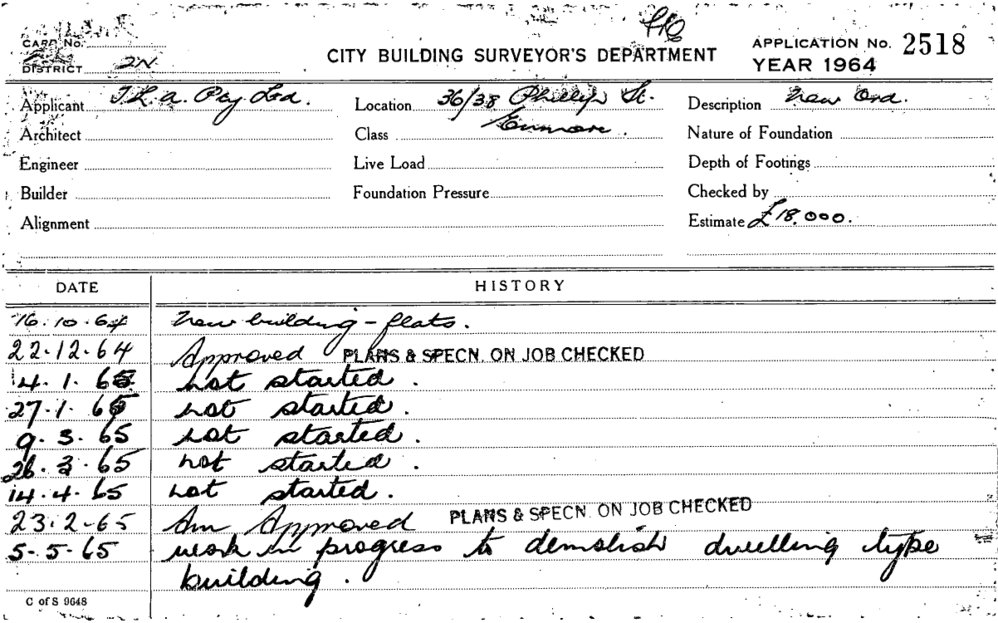 CARD No.
DISTRICT 2N
CITY BUILDING SURVEYOR'S DEPARTMENT
APPLICATION No. 2518
YEAR 1964
Applicant T.L.A. Pty Ltd.
Location 36/38 Phillip St.
Enmore.
Description New Ord.
Architect
Class
Nature of Foundation
Engineer
Live Load
Depth of Footings
Builder
Foundation Pressure
Checked by
Alignment
Estimate £18,000.
DATE HISTORY
16.10.64 New building - flats.
22.12.64 Approved PLANS & SPECN. ON JOB CHECKED
14.1.65 Not started.
27.1.65 Not started.
9.3.65 Not started.
26.3.65 Not started.
14.4.65 Not started.
23.2-65 Am Approved PLANS & SPECN. ON JOB CHECKED
5-5-65 work in progress to demolish dwelling type
building.
C of S 9648